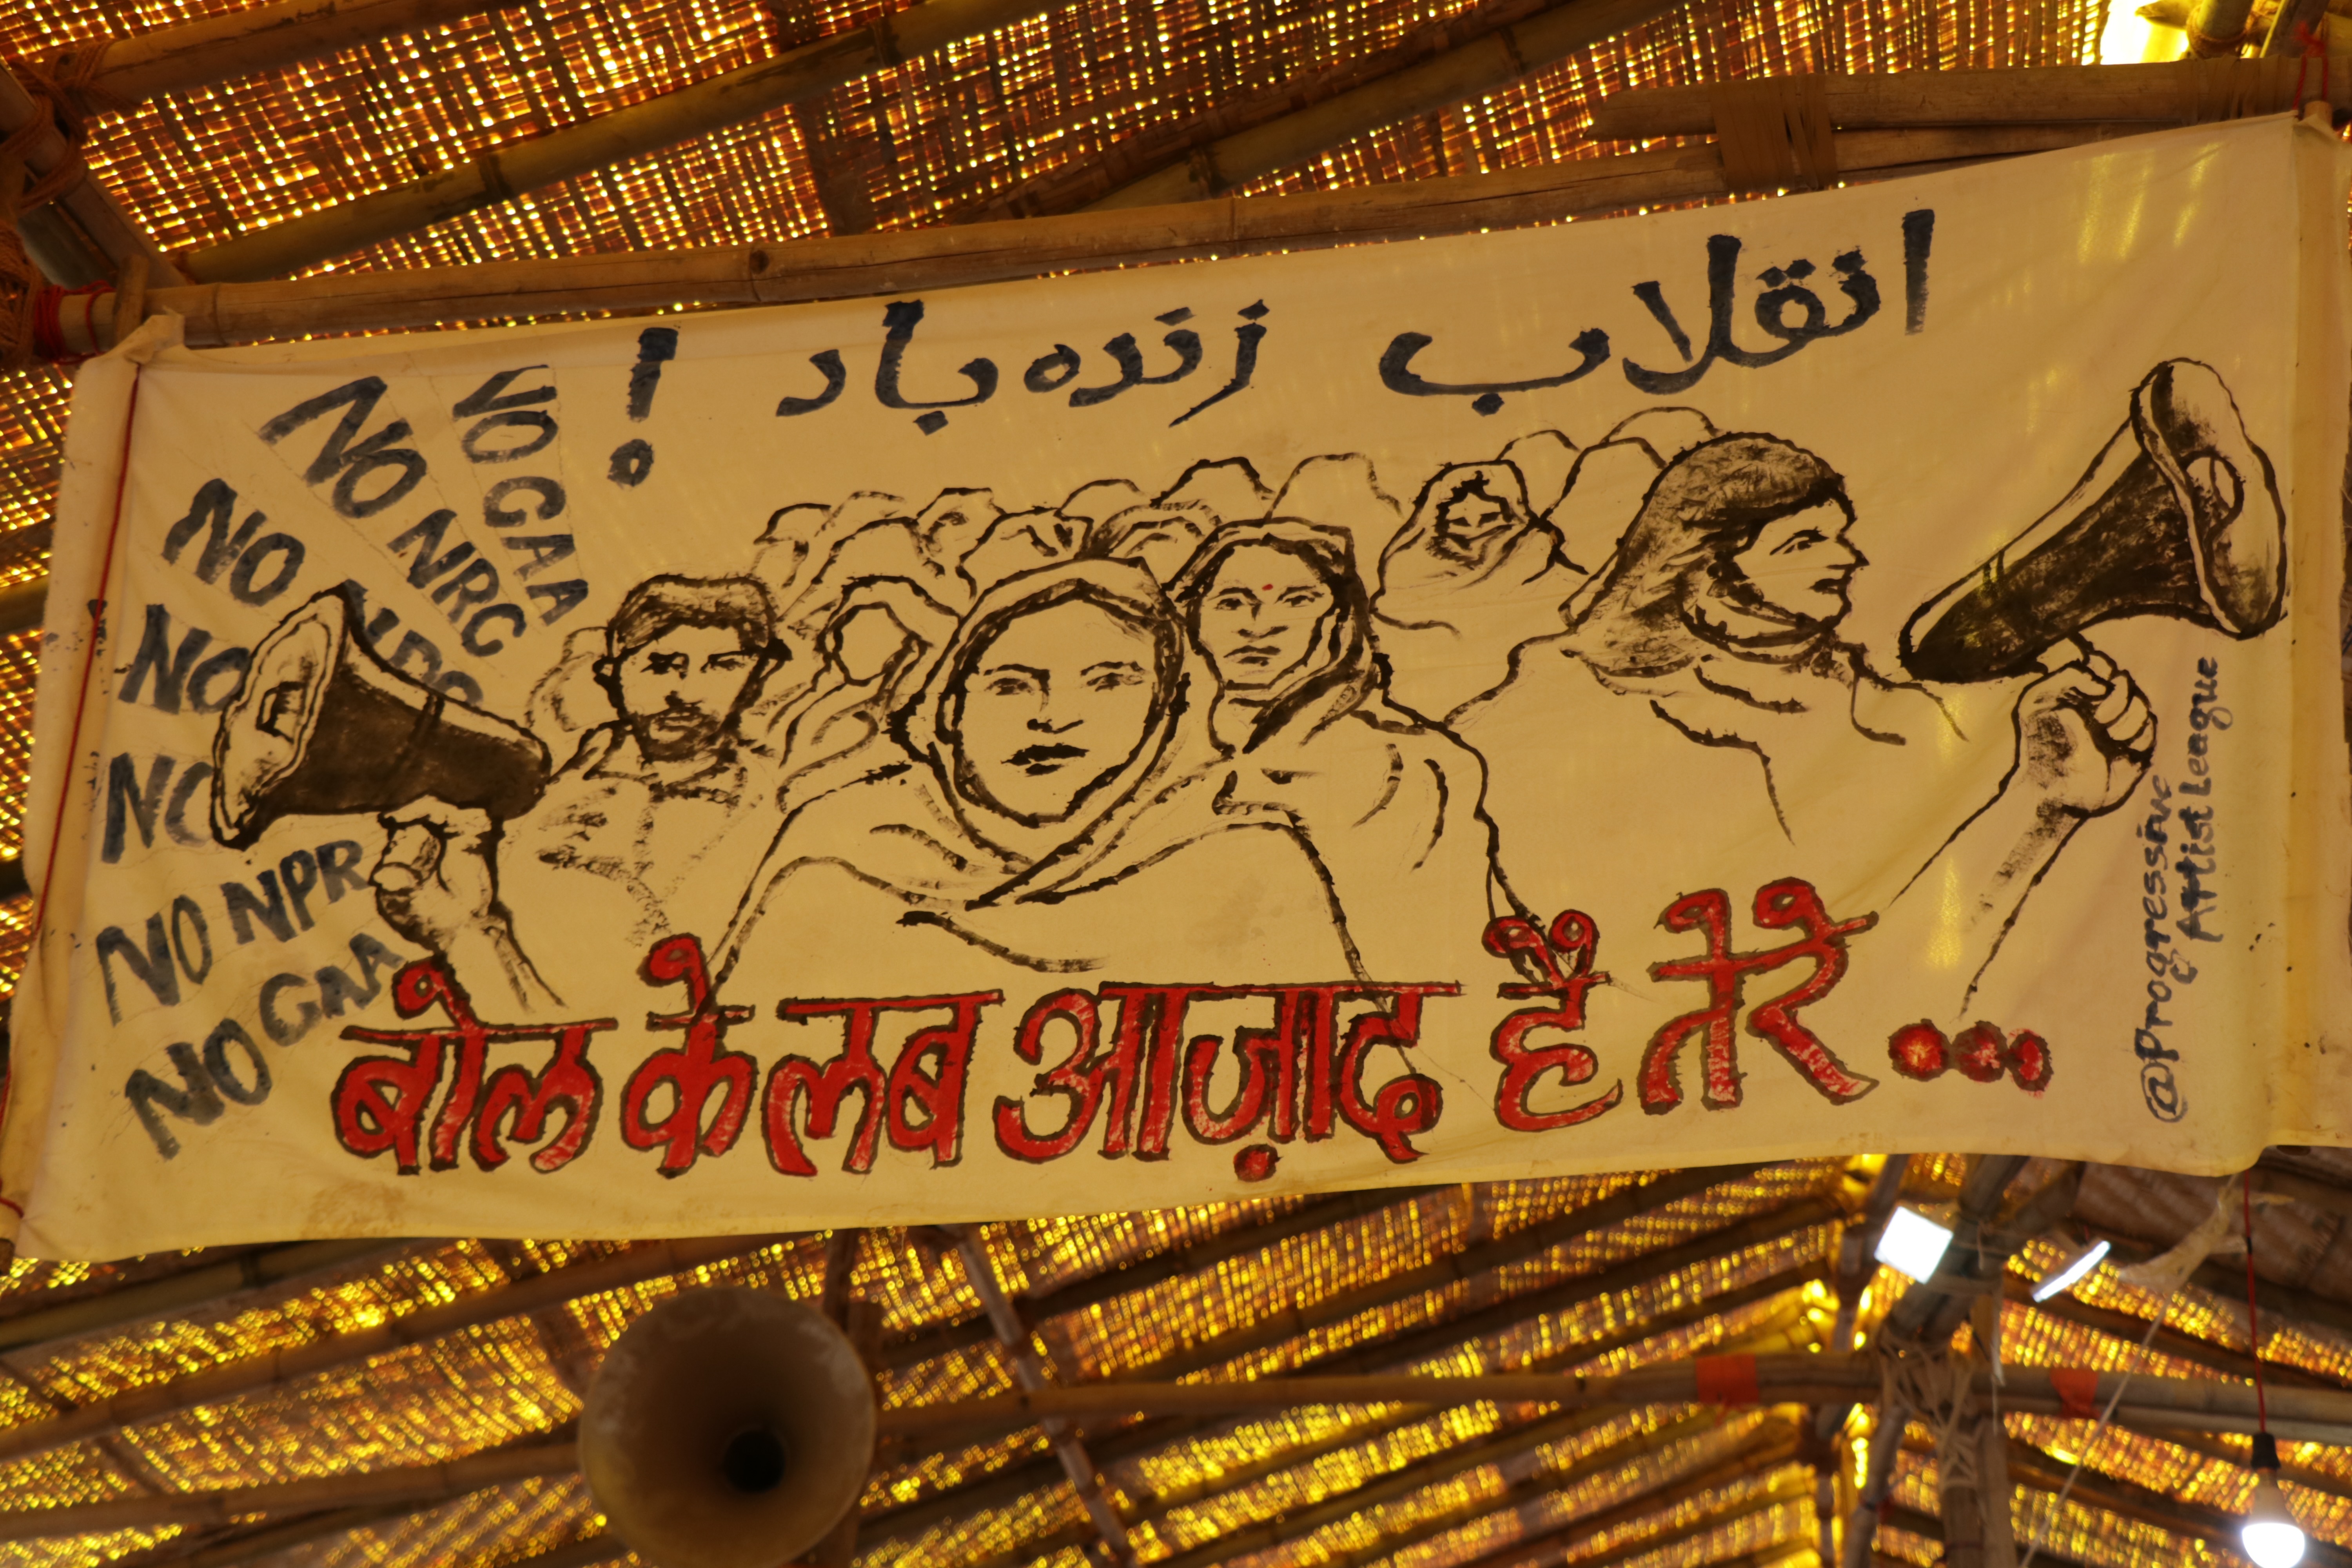 انقلاب زنده باد !
NO CAA
NO NRC
NO
NO
NO
NO NPR
NO CAA
बोल के लब आज़ाद हैं तेरे...
@Progressive
Artist League